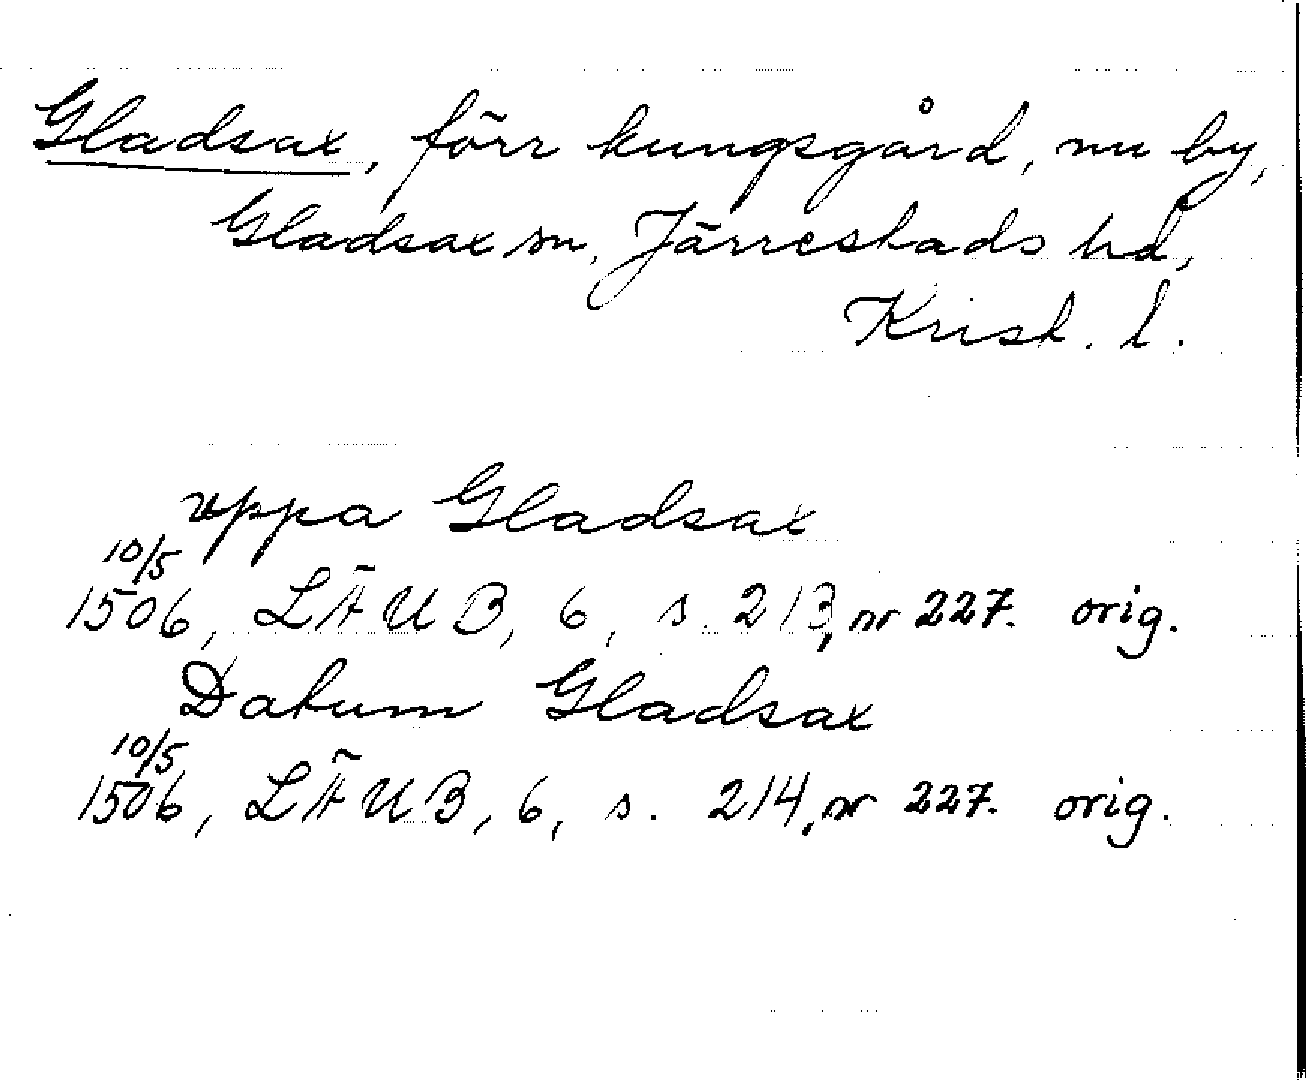 Gladsax, förr kungsgård, nu by,
Gladsax sn, Järrestads hd,
Krist. l.
uppa Gladsax
10/5
1506, LÄUB, 6, s. 213, nr 227. orig.
Datum Gladsax
10/5
1506, LÄUB, 6, s. 214, nr 227. orig.